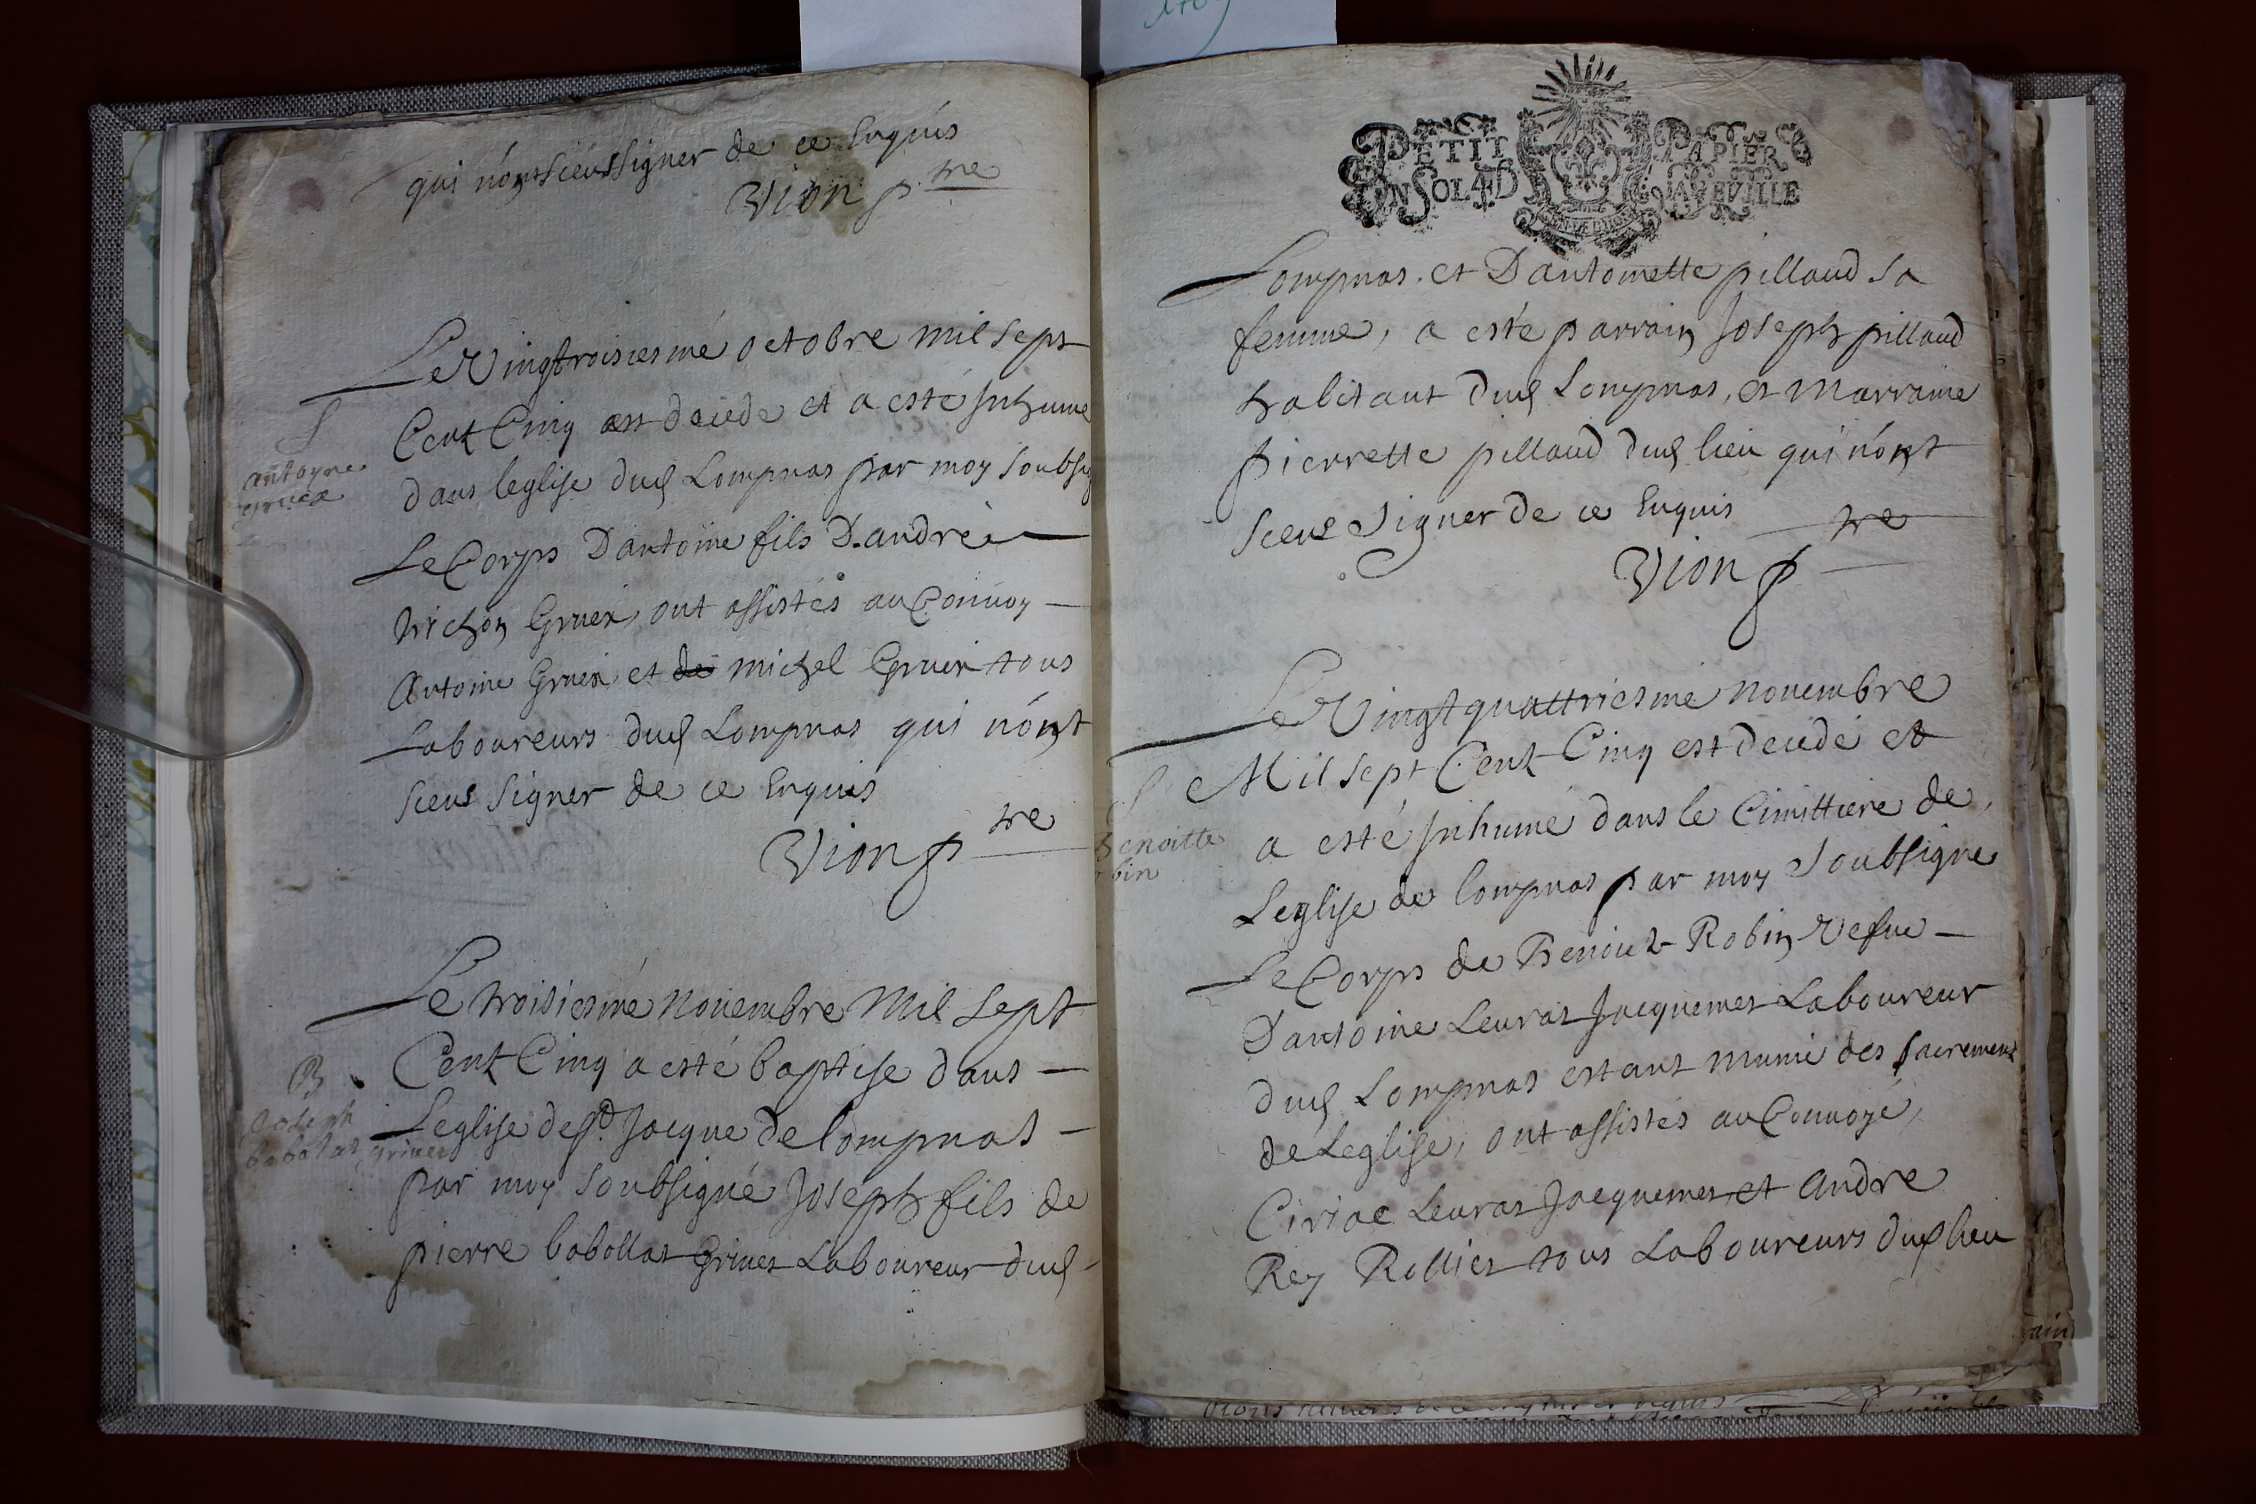 qui n'ont sceus signer de ce Enquis
Vion p.tre
Le Vingtroisiesme octobre mil sept
Cent Cinq est decede et a esté Inhume
S
antoyne
gruex
dans leglise dud Lompnas par moy soubsig
Le Corps D'antoine fils D'andre
trichon Gruex, ont assistés au Convoy
Antoine Gruex et de michel Gruex tous
Laboureurs dud Lompnas qui n'ont
sceus signer de ce Enquis
Vion p.tre
Le troisiesme Novembre Mil sept
Cent Cinq a esté baptise dans
B
Joseph
babolat grivet
Leglise de St Jacque de lompnas
par moy soubsigné Joseph fils de
pierre babollat Grivet Laboureur dud
PETIT PAPIER
UN SOL 4 D LA FEVILLE
Lompnas. et D'antoinette pillaud sa
femme, a esté parrain Joseph pillaud
habitant dud Lompnas, et Marraine
pierrette pillaud dud lieu qui n'ont
sceus signer de ce Enquis
Vion p.tre
Le Vingtquattriesme Novembre
Mil sept Cent Cinq est decedé et
a esté Inhumé dans le Cimittiere de
benoitte
bin
Leglise de lompnas par moy soubsigne
Le Corps de Benoite Robin Vefue
D'antoine Leuras Jacquemet Laboureur
dud Lompnas estant muni des sacrements
de Leglise, ont assistés au Convoye,
Ciriac Leuras Jacquemet et andre
Rey Rollier tous Laboureurs dud lieu